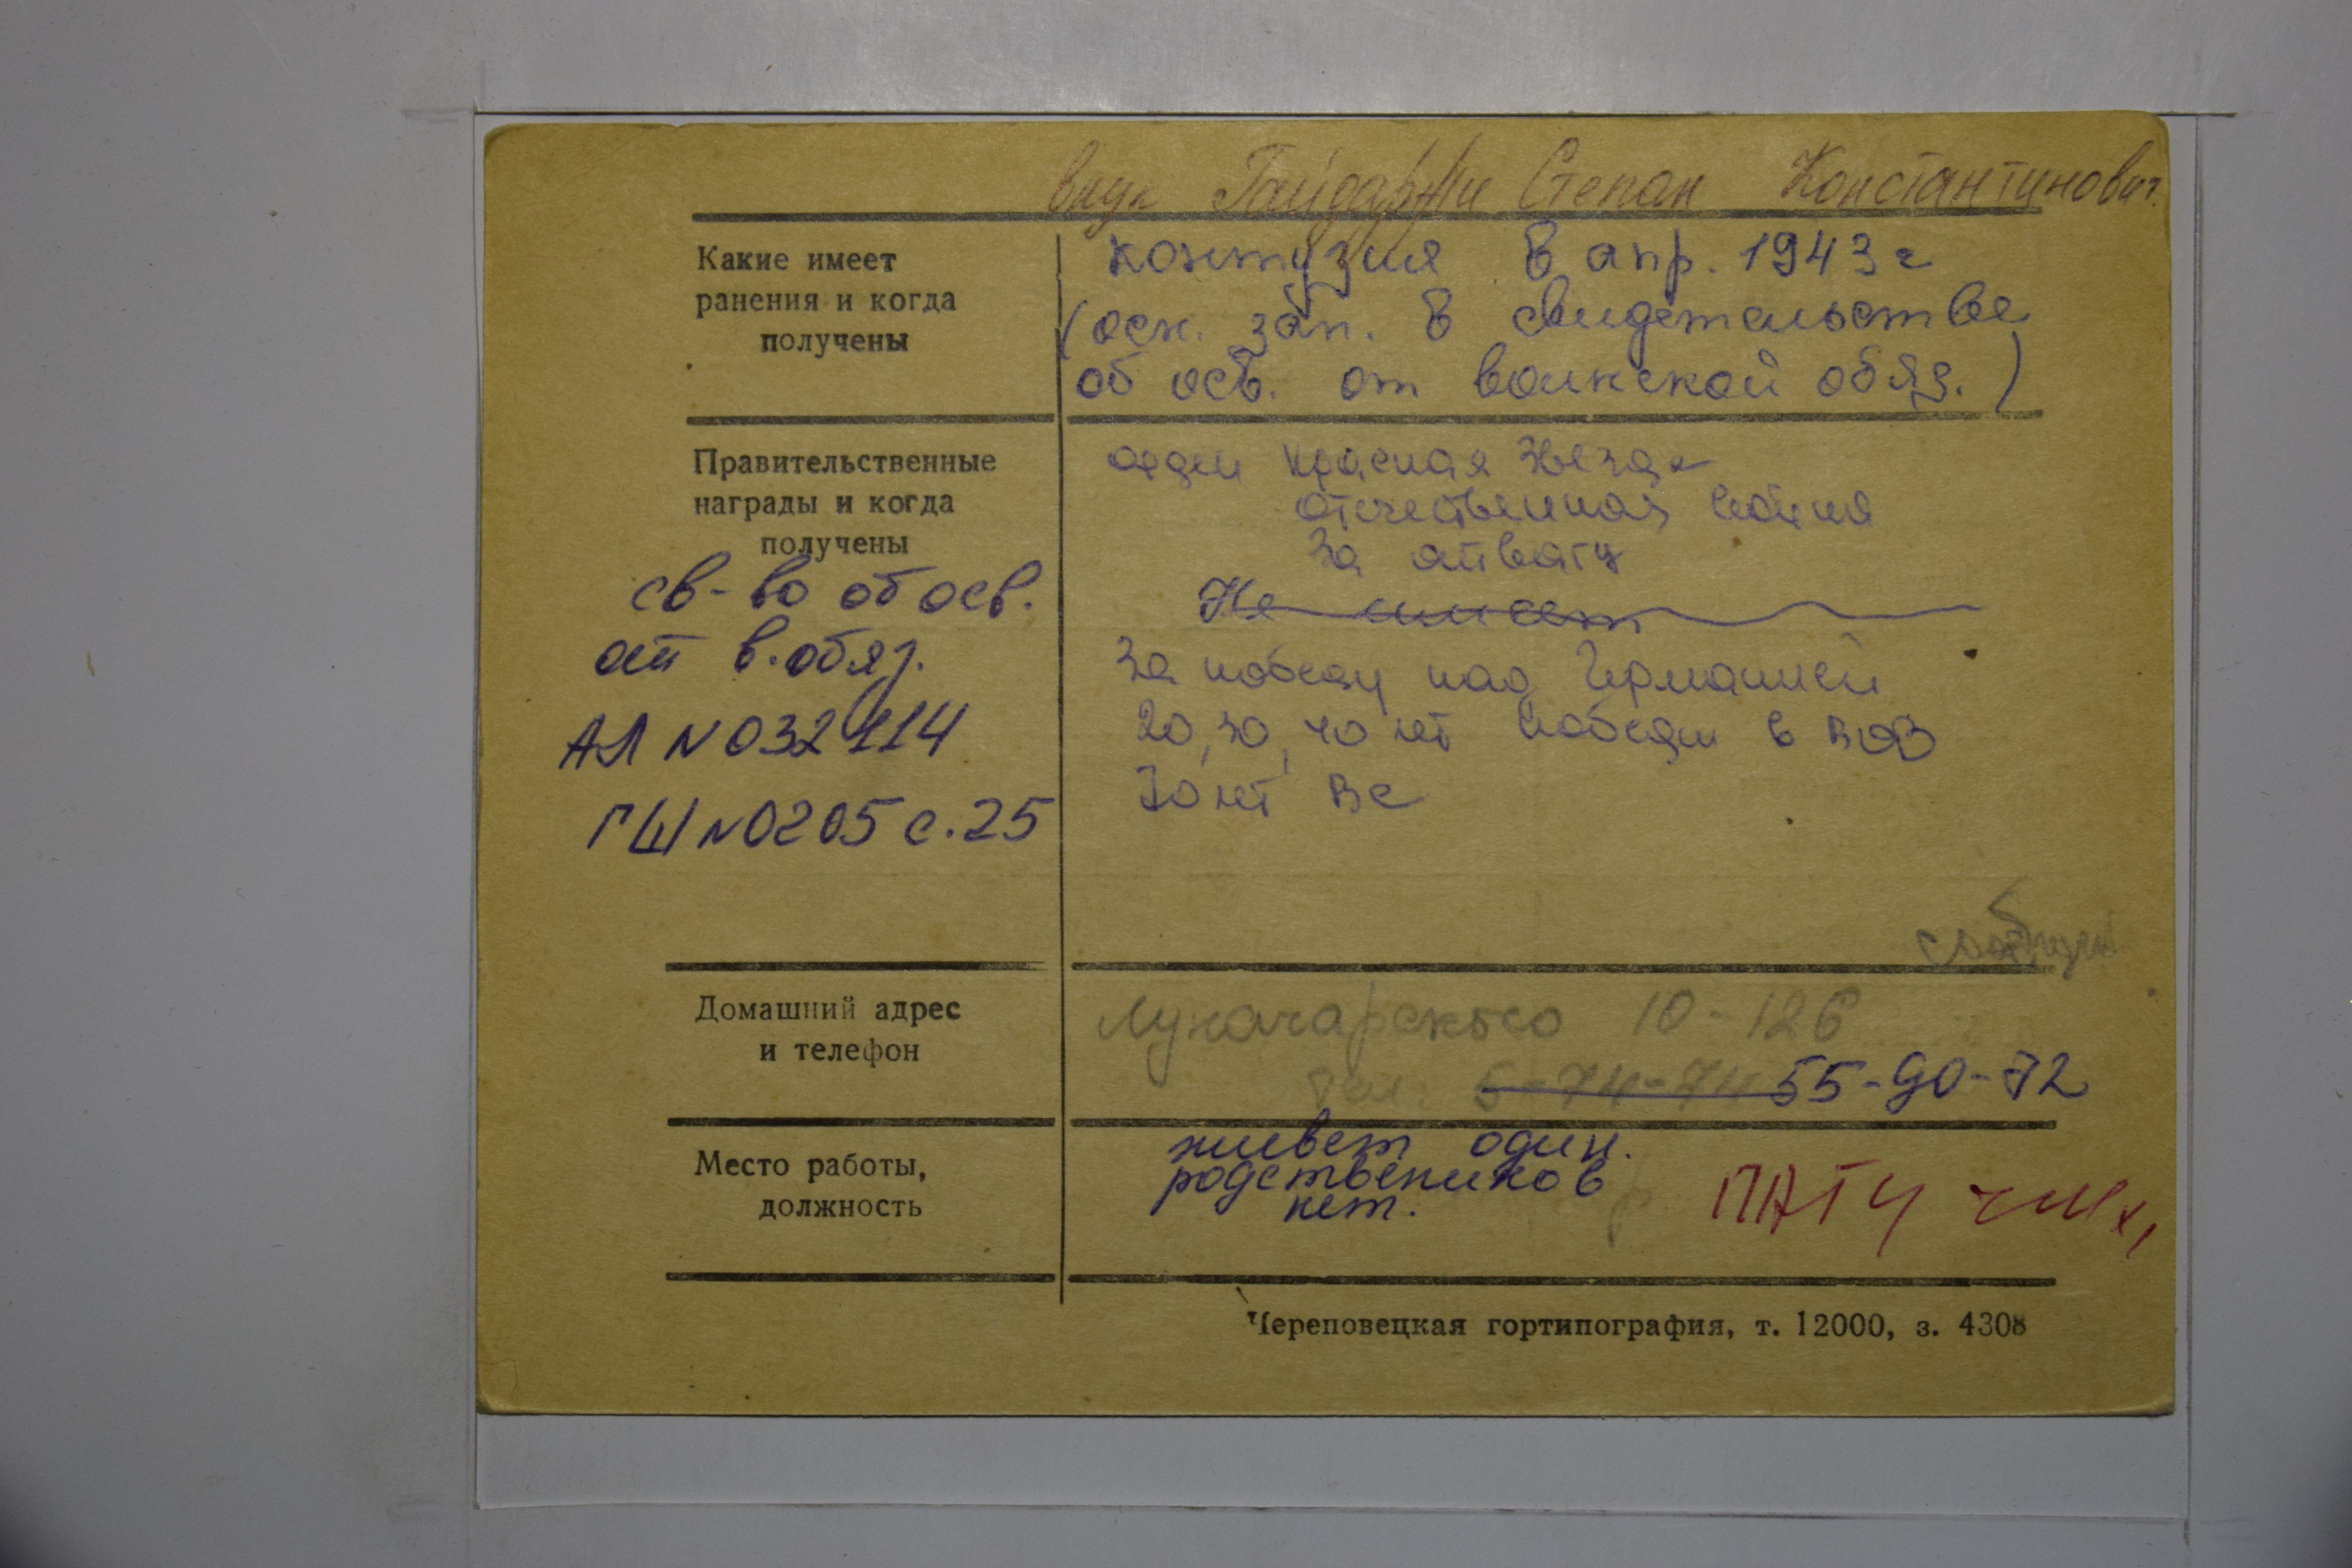 внук Гайдаржи Степан Константинович
Какие имеет
ранения и когда
получены
контузия в апр. 1943 г
(осн. зап. в свидетельстве
об осв. от воинской обяз.)
Правительственные
награды и когда
получены
св-во об осв.
от в. обяз.
АЛ N 032114
ГШ N 0205 с. 25
орден Красная Звезда
отечественная война
За отвагу
Не имеет
За победу над Германией
20, 30, 40 лет победы в ВОВ
70 лет ВС
Домашний адрес
и телефон
Луначарского 10-126
тел. 5-74-74 55-90-72
Место работы,
должность
живет один.
родствеников
нет.
Череповецкая гортипография, т. 12000, з. 4308